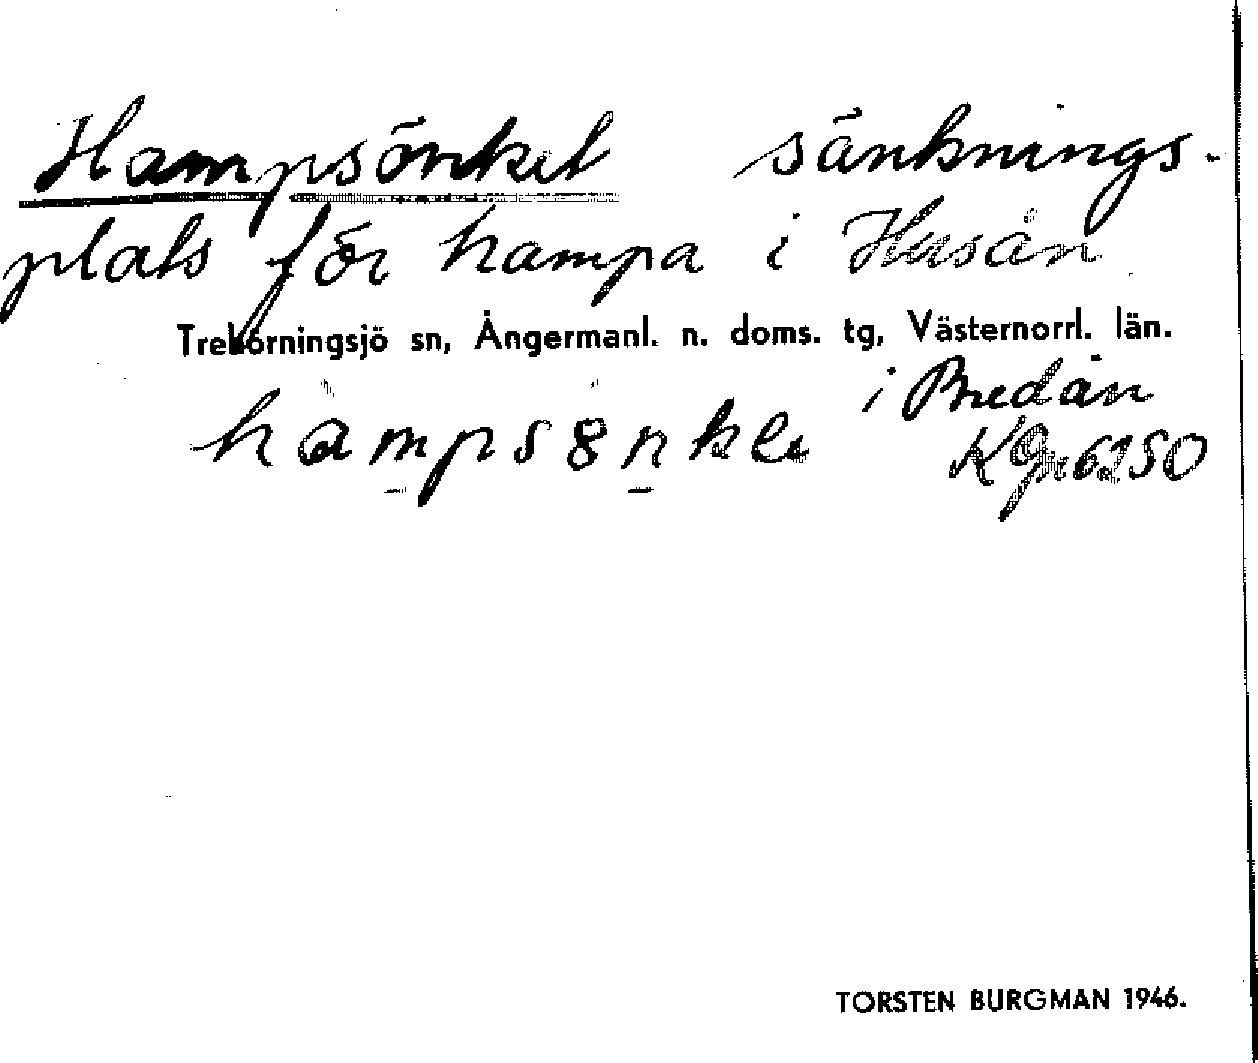 Hampsönket sänknings-
plats för hampa i Husån
Trehörningsjö sn, Ångermanl. n. doms. tg, Västernorrl. län.
i Bredån
hampsönke
KGr 6250
TORSTEN BURGMAN 1946.